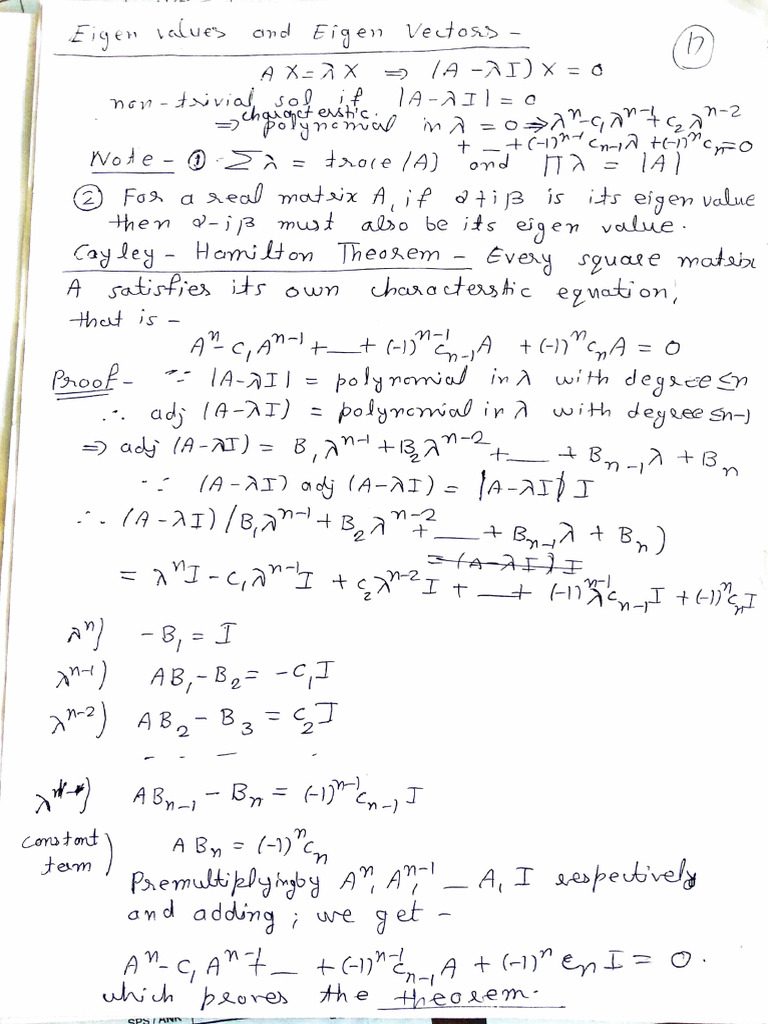 Eigen values and Eigen Vectors -
17
AX = λX ⇒ (A - λI) X = 0
non-trivial sol if |A - λI| = 0
⇒ characterstic polynomial in λ = 0 ⇒ λⁿ - c₁ λⁿ⁻¹ + c₂ λⁿ⁻²
+ _ + (-1)ⁿ⁻¹ cₙ₋₁ λ + (-1)ⁿ cₙ = 0
Note - ① Σλ = trace (A) and Πλ = |A|
② For a real matrix A, if α + iβ is its eigen value
then α - iβ must also be its eigen value.
Cayley - Hamilton Theorem - Every square matrix
A satisfies its own characterstic equation,
that is -
Aⁿ - c₁ Aⁿ⁻¹ + __ + (-1)ⁿ⁻¹ cₙ₋₁ A + (-1)ⁿ cₙ A = 0
Proof - ∵ |A - λI| = polynomial in λ with degree ≤ n
∴ adj (A - λI) = polynomial in λ with degree ≤ n-1
⇒ adj (A - λI) = B₁ λⁿ⁻¹ + B₂ λⁿ⁻² + __ + Bₙ₋₁ λ + Bₙ
∵ (A - λI) adj (A - λI) = |A - λI| I
∴ (A - λI) (B₁ λⁿ⁻¹ + B₂ λⁿ⁻² + __ + Bₙ₋₁ λ + Bₙ)
= (A - λI) I
= λⁿ I - c₁ λⁿ⁻¹ I + c₂ λⁿ⁻² I + __ + (-1)ⁿ⁻¹ λ cₙ₋₁ I + (-1)ⁿ cₙ I
λⁿ) - B₁ = I
λⁿ⁻¹) AB₁ - B₂ = - c₁ I
λⁿ⁻²) AB₂ - B₃ = c₂ I
- - - -
λ) ABₙ₋₁ - Bₙ = (-1)ⁿ⁻¹ cₙ₋₁ I
constant term) ABₙ = (-1)ⁿ cₙ
Premultiplying by Aⁿ, Aⁿ⁻¹, _ A, I respectively
and adding, we get -
Aⁿ - c₁ Aⁿ⁻¹ + _ + (-1)ⁿ⁻¹ cₙ₋₁ A + (-1)ⁿ cₙ I = 0.
which proves the theorem.